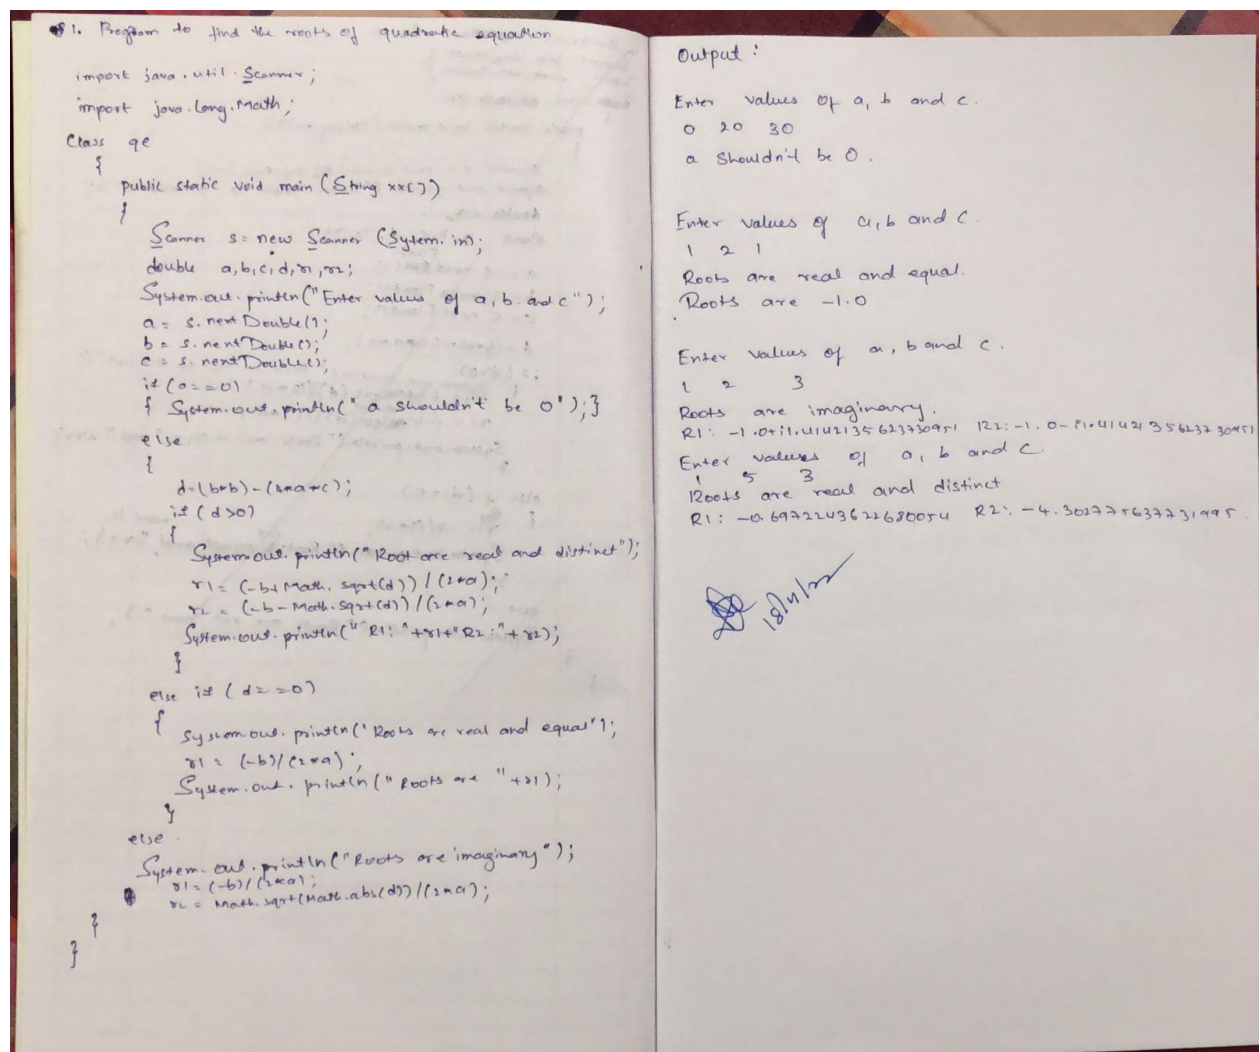 1. Program to find the roots of quadratic equation
import java.util.Scanner;
import java.lang.Math;
Class qe
{
public static void main (String xx[])
{
Scanner s = new Scanner (Sytem.in);
double a,b,c,d,r1,r2;
System.out.println("Enter values of a, b and c");
a = s.nextDouble();
b = s.nextDouble();
c = s.nextDouble();
if (a==0)
{ System.out.println(" a shouldn't be 0"); }
else
{
d=(b*b)-(4*a*c);
if (d>0)
{
System.out.println("Root are real and distinct");
r1 = (-b+Math.sqrt(d))/(2*a);
r2 = (-b-Math.sqrt(d))/(2*a);
System.out.println("R1: "+r1+"R2:"+r2);
}
else if (d==0)
{
System.out.println("Roots are real and equal");
r1 = (-b)/(2*a);
System.out.println("Roots are "+r1);
}
else
System.out.println("Roots are imaginary");
r1 = (-b)/(2*a);
r2 = Math.sqrt(Math.abs(d))/(2*a);
}
}
Output :
Enter values of a, b and c.
0 20 30
a shouldn't be 0.
Enter values of a, b and c.
1 2 1
Roots are real and equal.
Roots are -1.0
Enter values of a, b and c.
1 2 3
Roots are imaginary.
R1: -1.0+i1.4142135623730951 R2:-1.0-i1.4142135623730951
Enter values of a, b and c.
1 5 3
Roots are real and distinct
R1: -0.6972243622680054 R2: -4.302775637731995.
18/11/22